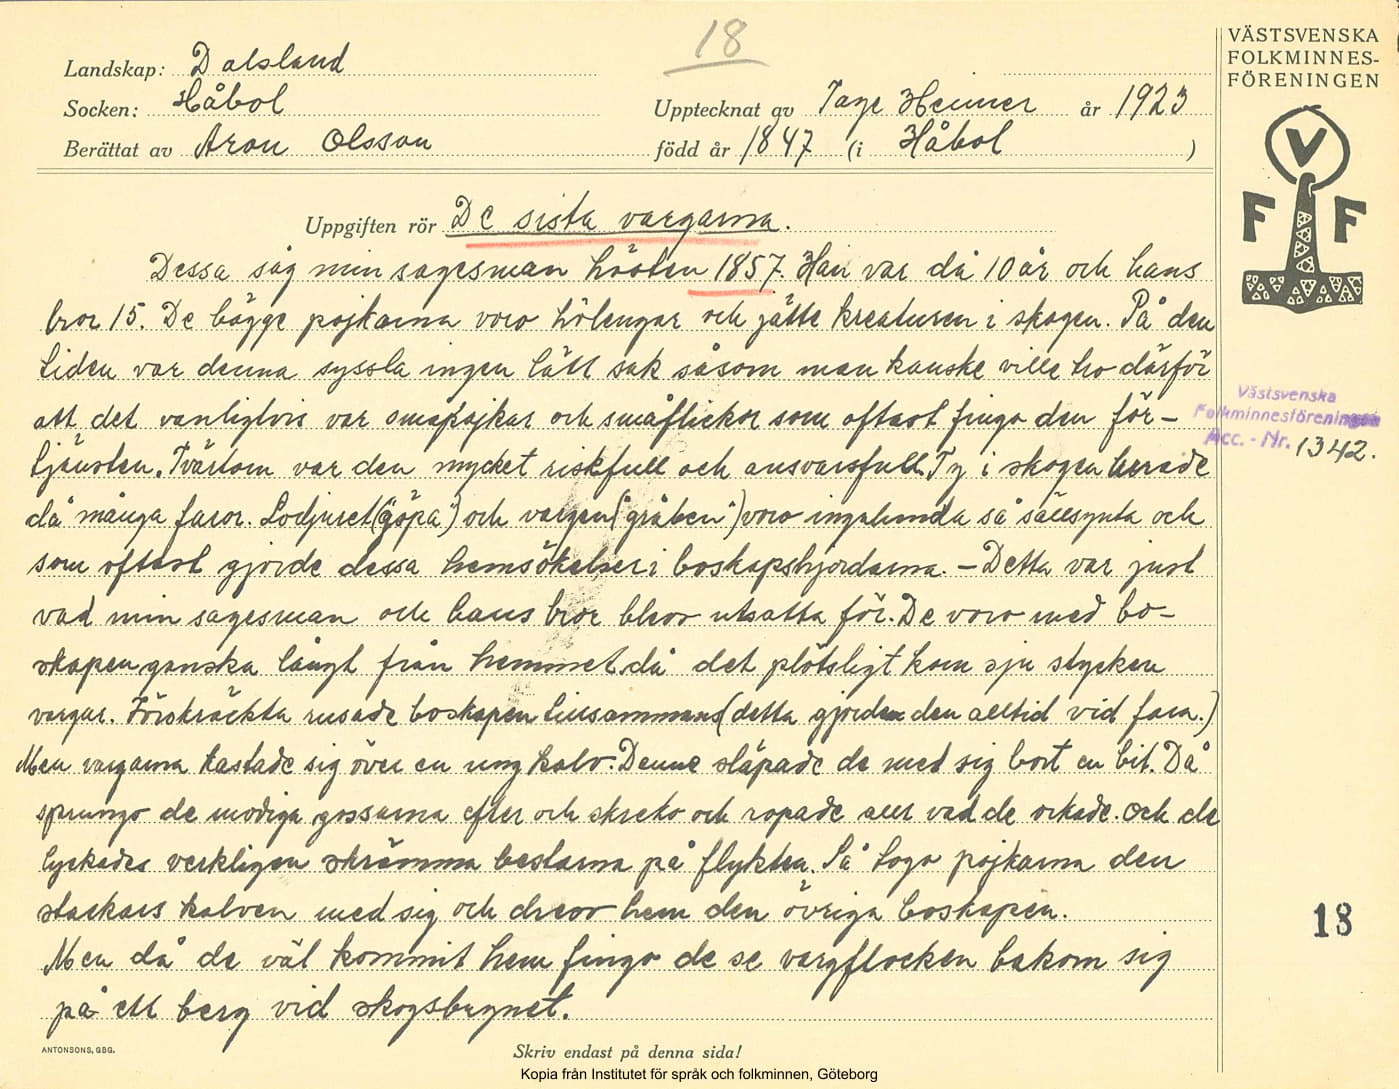 18
VÄSTSVENSKA
FOLKMINNES-
FÖRENINGEN
Landskap: Dalsland
Socken: Håbol
Upptecknat av Tage Heimer år 1923
Berättat av Aron Olsson
född år 1847 (i Håbol)
V
F F
Uppgiften rör De sista vargarna.
Dessa såg min sagesman hösten 1857. Han var då 10 år och hans
bror 15. De bägge pojkarna voro hölengar och jätte kreaturen i skogen. På den
tiden var denna syssla ingen lätt sak såsom man kanske ville tro därför
att det vanligtvis var småpojkar och småflickor som oftast fingo den för-
tjänsten. Tvärtom var den mycket riskfull och ansvarsfull. Ty i skogen lurade
då många faror. Lodjuret ("göpa") och vargen ("gråben") voro ingalunda så sällsynta och
som oftast gjorde dessa hemsökelser i boskapshjordarna. – Detta var just
vad min sagesman och hans bror blevo utsatta för. De voro med bo-
skapen ganska långt från hemmet då det plötsligt kom sju stycken
vargar. Förskräckta rusade boskapen tillsammans (detta gjorde den alltid vid fara.)
Men vargarna kastade sig över en ung kalv. Denne släpade de med sig bort en bit. Då
sprungo de modiga gossarna efter och skreko och ropade allt vad de orkade. Och de
lyckades verkligen skrämma bestarna på flykten. Så togo pojkarna den
stackars kalven med sig och drevo hem den övriga boskapen.
Men då de väl kommit hem fingo de se vargflocken bakom sig
på ett berg vid skogsbrynet.
Västsvenska
Folkminnesföreningen
Acc. - Nr. 1342.
18
ANTONSONS, GBG.
Skriv endast på denna sida!
Kopia från Institutet för språk och folkminnen, Göteborg